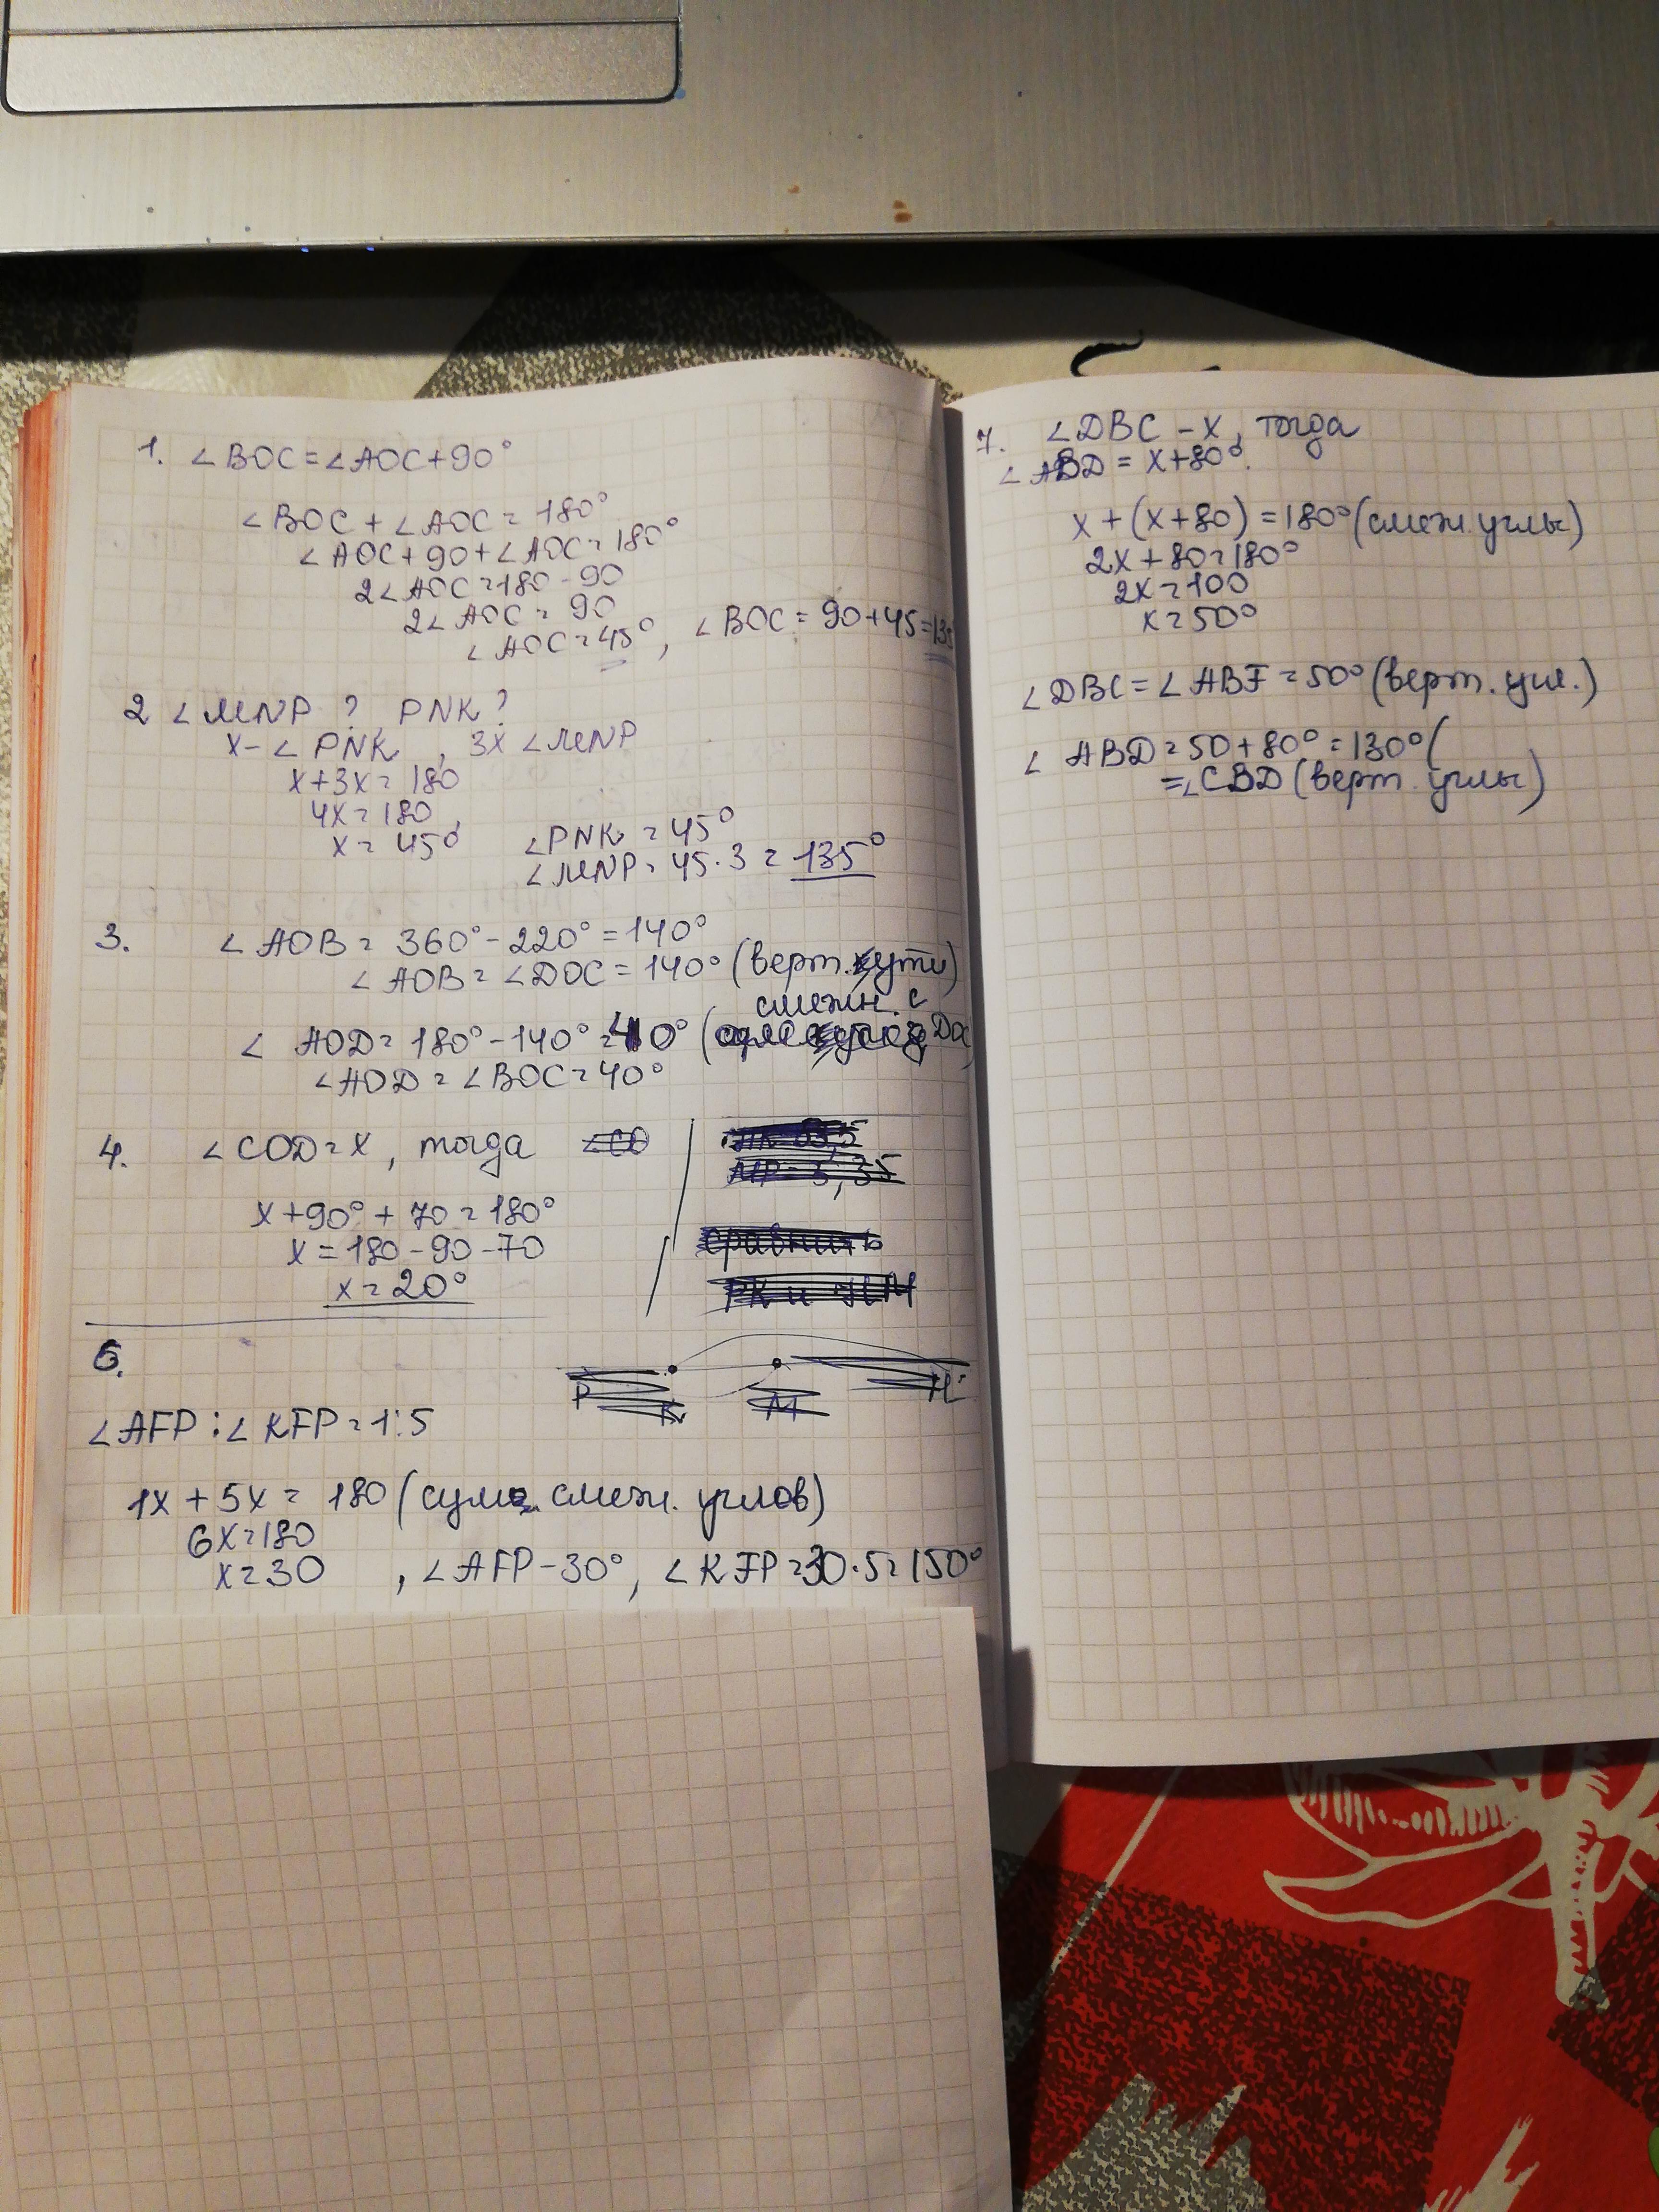 1. ∠BOC = ∠AOC + 90°
∠BOC + ∠AOC = 180°
∠AOC + 90 + ∠AOC = 180°
2∠AOC = 180 - 90
2∠AOC = 90
∠AOC = 45°, ∠BOC = 90 + 45 = 135
2 ∠MNP ? PNK ?
x - ∠PNK, 3x ∠MNP
x + 3x = 180
4x = 180,
x = 45°
∠PNK = 45°
∠MNP = 45·3 = 135°
3. ∠AOB = 360° - 220° = 140°
∠AOB = ∠DOC = 140° (верт.
смежн. с
∠AOD = 180° - 140° = 40° ( DOC)
∠AOD = ∠BOC = 40°
4. ∠COD = x, тогда ∠CO
x + 90° + 70 = 180°
x = 180 - 90 - 70
x = 20°
сравнить
РК и
P K M
6.
∠AFP : ∠KFP = 1:5
1x + 5x = 180 (сумм. смеж. углов)
6x = 180
x = 30, ∠AFP - 30°, ∠KFP = 30·5 = 150°
7. ∠DBC - x, тогда
∠ABD = x + 80°.
x + (x + 80) = 180° (смеж. углы)
2x + 80 = 180°
2x = 100
x = 50°
∠DBC = ∠ABF = 50° (верт. угл.)
∠ABD = 50 + 80° = 130° (
= ∠CBD (верт. углы)